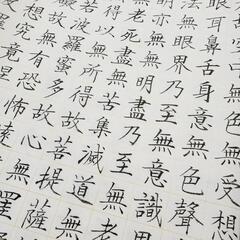 色無受想
眼耳鼻舌身意無色聲
法無眼界乃至無意識界
亦無無明盡乃至無老
老死盡無苦集滅道無
得以無所得故菩提薩
波羅蜜多故心無
故無有恐怖
想究竟